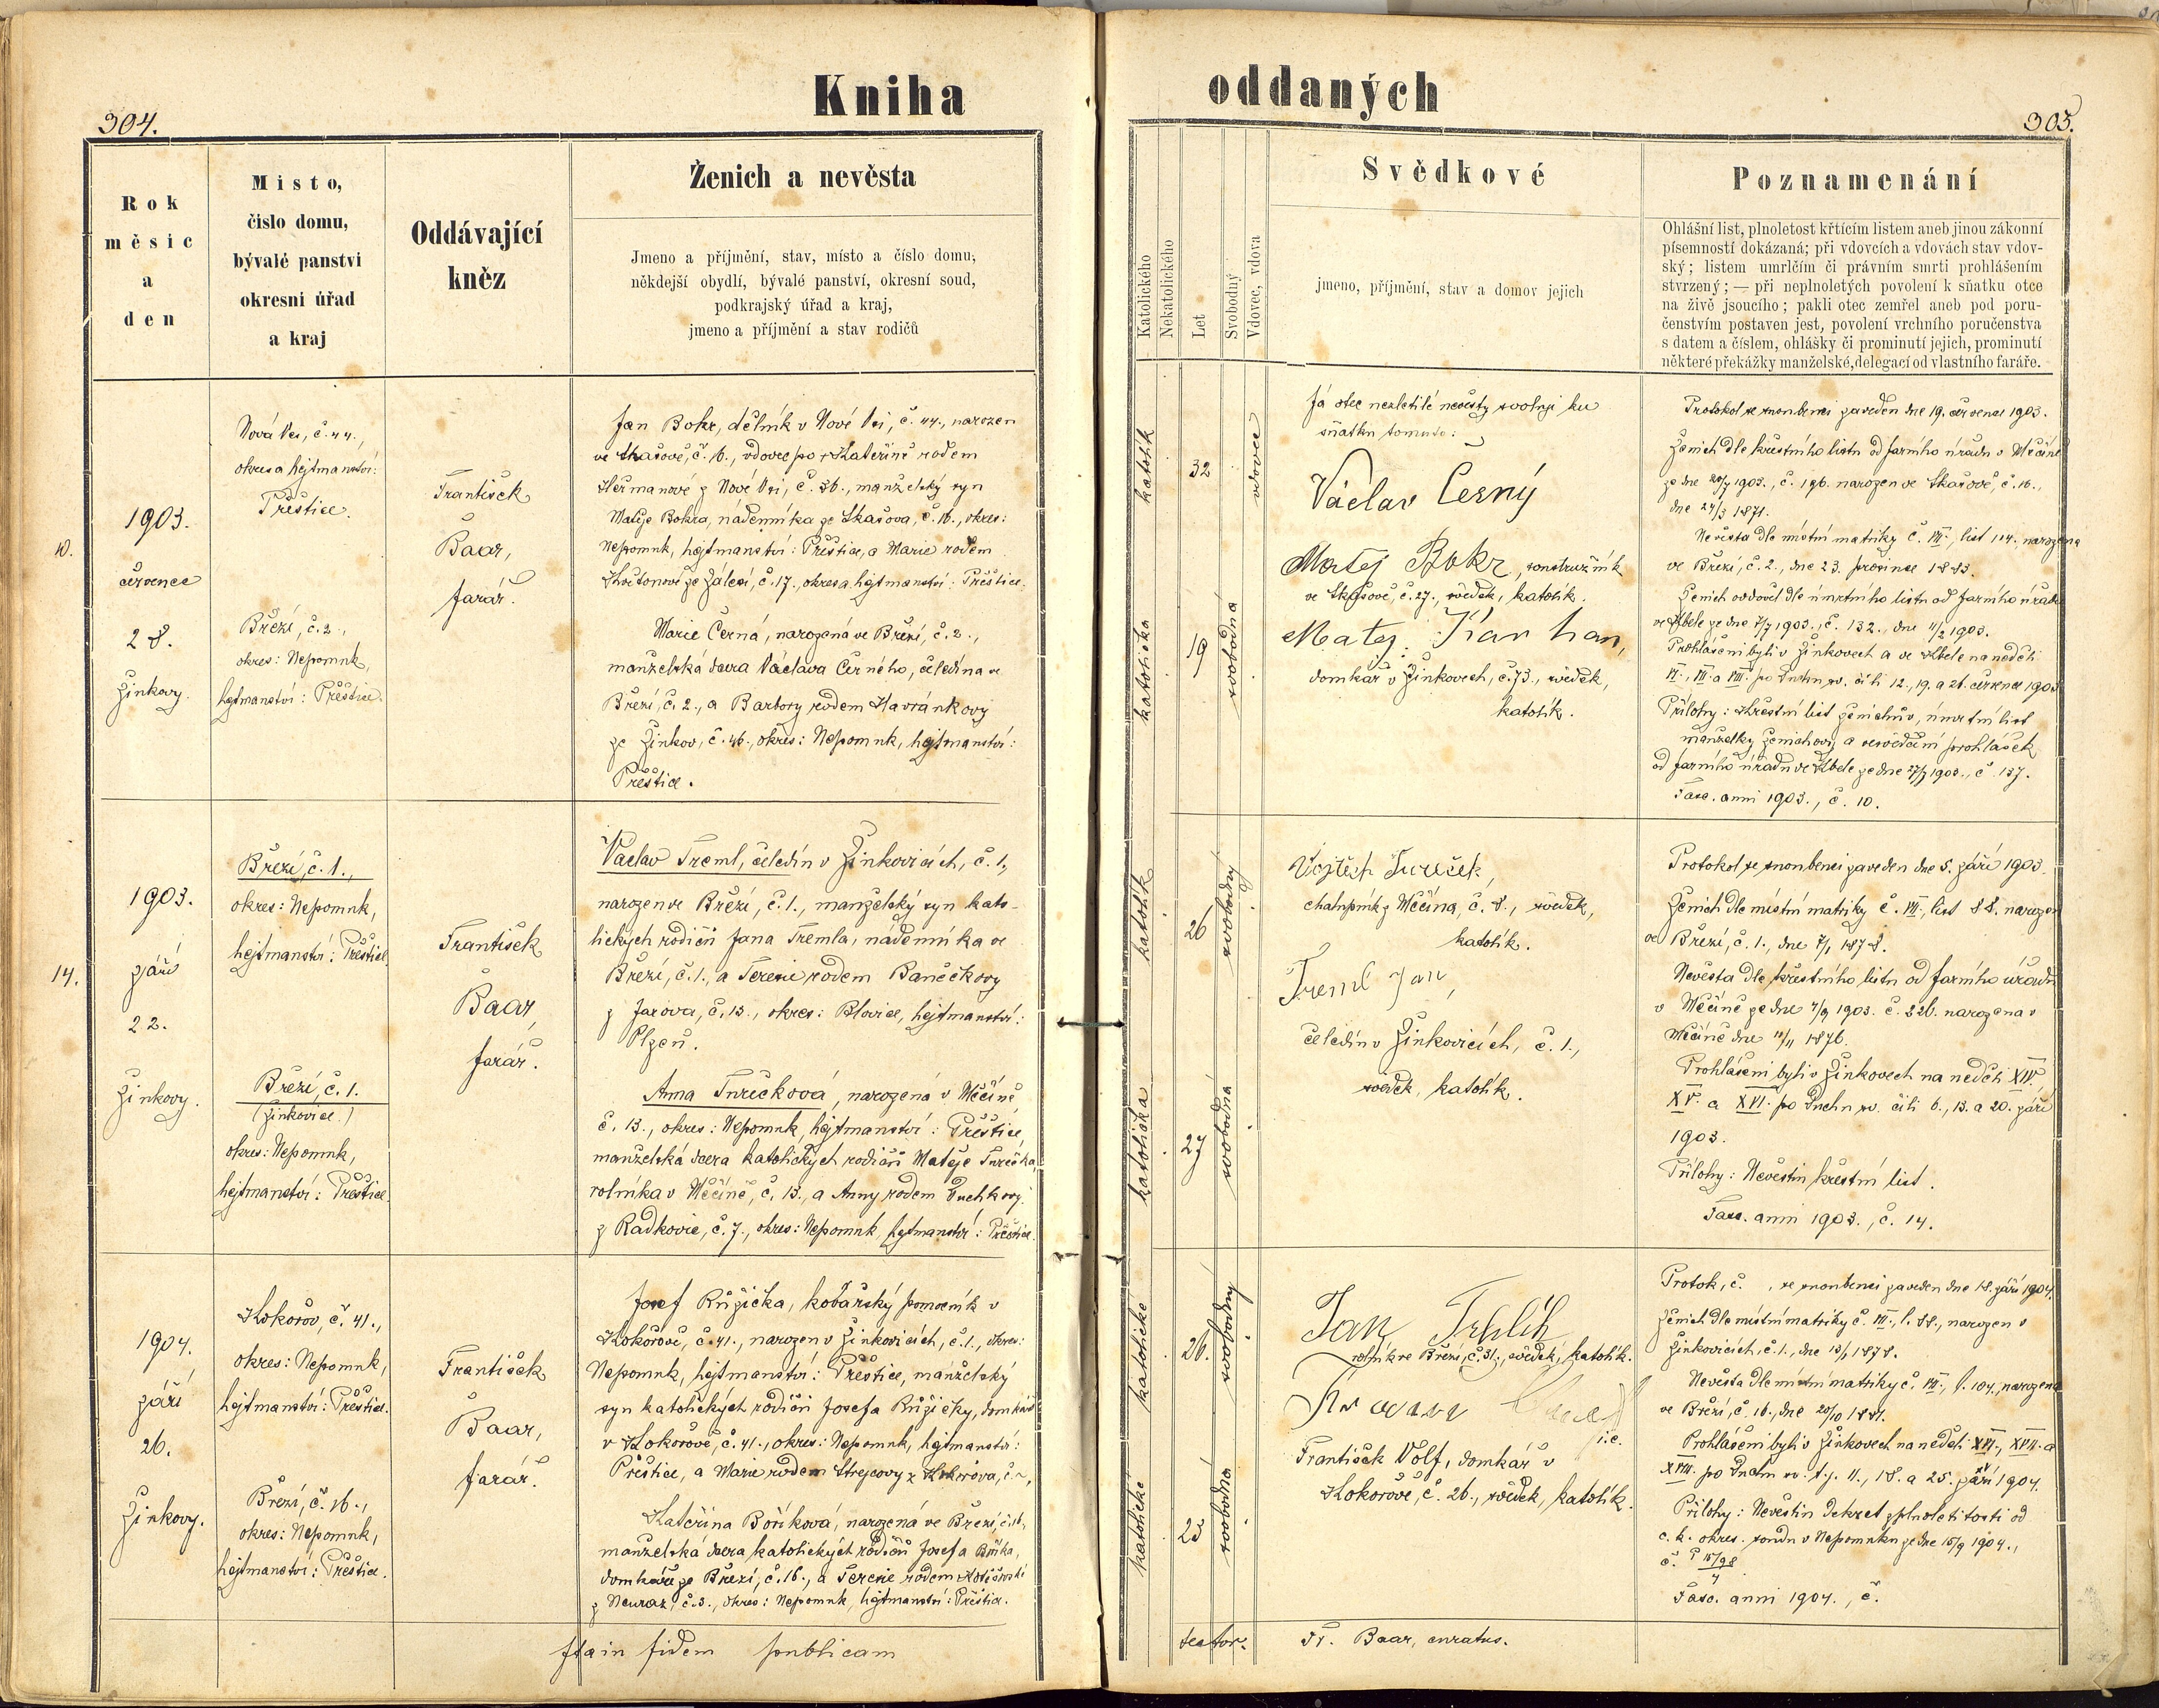 Kniha
oddaných
304.
305.
Rok
měsíc
a
den
Misto,
čislo domu,
bývalé panství
okresní úřad
a kraj
Oddávající
kněz
Ženich a nevěsta
Jmeno a příjmění, stav, místo a číslo domu,
někdejší obydlí, bývalé panství, okresní soud,
podkrajský úřad a kraj,
jmeno a příjmění a stav rodičů
Katolického
Nekatolického
Let
Svobodný
Vdovec, vdova
Svědkové
jmeno, příjmění, stav a domov jejich
Poznamenání
Ohlášní list, plnoletost křtícím listem aneb jinou zákonní
písemností dokázaná; při vdovcích a vdovách stav vdov-
ský; listem umrlčím či právním smrti prohlášením
stvrzený; — při neplnoletých povolení k sňatku otce
na živě jsoucího; pakli otec zemřel aneb pod poru-
čenstvím postaven jest, povolení vrchního poručenstva
s datem a číslem, ohlášky či prominutí jejich, prominutí
některé překážky manželské, delegací od vlastního faráře.
10.
1903.
července
28.
Žinkovy.
Nová Ves, č. 44.,
okres a hejtmanství:
Přeštice.
Březí, č. 2.,
okres: Nepomuk,
hejtmanství: Přeštice.
František
Baar,
farář.
Jan Bokr, dělník v Nové Vsi, č. 44., narozen
ve Skašově, č. 16., vdovec po † Kateřině rodem
Heřmanové z Nové Vsi, č. 36., manželský syn
Matěje Bokra, nádenníka ze Skašova, č. 16., okres:
Nepomuk, hejtmanství: Přeštice, a Marie rodem
Květonové ze Zálesí, č. 17., okres a hejtmanství: Přeštice.
Marie Černá, narozená ve Březí, č. 2.,
manželská dcera Václava Černého, čeledína ve
Březí, č. 2., a Barbory rodem Havránkovy
ze Žinkov, č. 46., okres: Nepomuk, hejtmanství:
Přeštice.
katolík
32
vdovec
katolička
19
svobodná
Já otec nezletilé nevěsty svoluji ku
sňatku tomuto:
Václav Černý
Matěj Bokr, soustružník
ve Skašově, č. 27., svědek, katolík.
Matěj
domkář v Žinkovech, č. 73., svědek,
katolík.
Protokol se snoubenci zaveden dne 19. července 1903.
Ženich dle křestního listu od farního úřadu v Měčíně
ze dne 20/7 1903., č. 196. narozen ve Skašově, č. 16.,
dne 24/3 1871.
Nevěsta dle místní matriky č. VII., list 114. narozena
ve Březí, č. 2., dne 23. prosince 1883.
Ženich ovdověl dle úmrtního listu od farního úřadu
ve Kbele ze dne 7/7 1903., č. 132., dne 11/2 1903.
Prohlášeni byli v Žinkovech a ve Kbele na neděli
VI., VII. a VIII. po Duchu sv. čili 12., 19. a 26. července 1903.
Přílohy: Křestní list ženichův, úmrtní list
manželky ženichovy a osvědčení prohlášek
od farního úřadu ve Kbele ze dne 27/7 1903., č. 137.
Fasc. anni 1903., č. 10.
14.
1903.
září
22.
Žinkovy.
Březí, č. 1.,
okres: Nepomuk,
hejtmanství: Přeštice.
Březí, č. 1.
(Žinkovice.)
okres: Nepomuk,
hejtmanství: Přeštice.
František
Baar,
farář.
Václav Treml, čeledín v Žinkovicích, č. 1.,
narozen ve Březí, č. 1., manželský syn kato-
lických rodičů Jana Tremla, nádenníka ve
Březí, č. 1., a Terezie rodem Banečkovy
z Jarova, č. 13., okres: Blovice, hejtmanství:
Plzeň.
Anna Turečková, narozená v Měčíně,
č. 13., okres: Nepomuk, hejtmanství: Přeštice,
manželská dcera katolických rodičů Matěje Turečka,
rolníka v Měčíně, č. 13., a Anny rodem Duchkovy
z Radkovic, č. 7., okres: Nepomuk, hejtmanství: Přeštice.
katolík
26
svobodný
katolička
27
svobodná
Vojtěch Tureček,
chalupník z Měčína, č. 8., svědek,
katolík.
Treml Jan,
čeledín v Žinkovicích, č. 1.,
svědek, katolík.
Protokol se snoubenci zaveden dne 5. září 1903.
Ženich dle místní matriky č. VII., list 88. narozen
ve Březí, č. 1., dne 7/1 1878.
Nevěsta dle křestního listu od farního úřadu
v Měčíně ze dne 4/9 1903. č. 226. narozena v
Měčíně dne 10/11 1876.
Prohlášeni byli v Žinkovech na neděli XIV.
XV. a XVI. po Duchu sv. čili 6., 13. a 20. září
1903.
Přílohy: Nevěstin křestní list.
Fasc. anni 1903., č. 14.
1904.
září
26.
Žinkovy.
Kokořov, č. 41.,
okres: Nepomuk,
hejtmanství: Přeštice.
Březí, č. 16.,
okres: Nepomuk,
hejtmanství: Přeštice.
František
Baar,
farář.
Josef Růžička, kovářský pomocník v
Kokořově, č. 41., narozen v Žinkovicích, č. 1., okres:
Nepomuk, hejtmanství: Přeštice, manželský
syn katolických rodičů Josefa Růžičky, domkáře
v Kokořově, č. 41., okres: Nepomuk, hejtmanství:
Přeštice, a Marie rodem Strejcovy z Kokořova, č. ~,
Kateřina Boříková, narozená ve Březí, č. 16.,
manželská dcera katolických rodičů Josefa Boříka,
domkáře ze Březí, č. 16., a Terezie rodem
z Neuraz, č. 3., okres: Nepomuk, hejtmanství: Přeštice.
katolické
26.
svobodný
katolické
23
svobodná
Jan
rolník ve Březí, č. 31., svědek, katolík.
František Volf, domkář v
Kokořově, č. 26., svědek, katolík.
Protok. č. , se snoubenci zaveden dne 18. září 1904.
Ženich dle místní matriky č. VII., l. 88., narozen v
Žinkovicích, č. 1., dne 13/1 1878.
Nevěsta dle místní matriky č. VII., l. 104., narozena
ve Březí, č. 16., dne 20/10 1881.
Prohlášeni byli v Žinkovech na neděli XVI., XVII. a
XVIII. po Duchu sv. t. j. 11., 18. a 25. září 1904.
Přílohy: Nevěstin dekret zplnoletitosti od
c. k. okres. soudu v Nepomuku ze dne 15/9 1904.,
Fasc. anni 1904., č.
fidem publicam
testor. Fr. Baar, curatus.